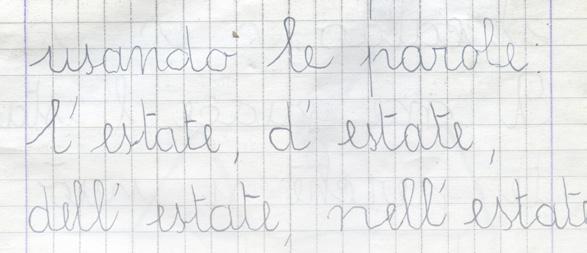 usando le parole:
l'estate, d'estate,
dell'estate, nell'estate